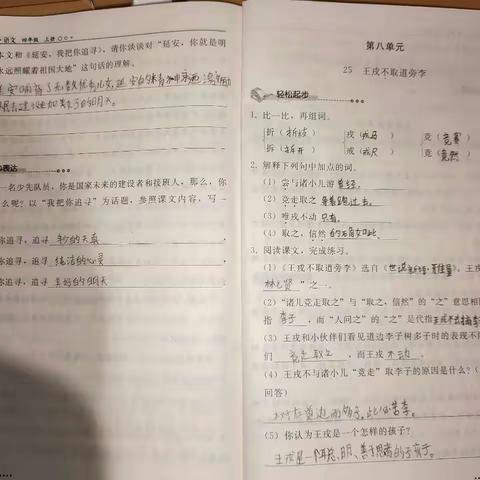 语文 四年级 上册
本文和《延安，我把你追寻》，请你谈谈对“延安，你就是明
永远照耀着祖国大地”这句话的理解。
表达
一名少先队员，你是国家未来的建设者和接班人，那么，你
么呢？以“我把你追寻”为话题，参照课文内容，写一
你追寻，追寻 的天真
你追寻，追寻 纯洁的心灵
你追寻，追寻 美好的明天
第八单元
25 王戎不取道旁李
轻松起步
1. 比一比，再组词。
折（折线） 戎（戎马） 竞（竞赛）
拆（拆开） 戒（戒尺） 竟（竟然）
2. 解释下列句中加点的词。
(1) 尝与诸小儿游 曾经。
(2) 竞走取之 争着跑过去。
(3) 唯戎不动 只有。
(4) 取之，信然 的确如此。
3. 阅读课文，完成练习。
(1)《王戎不取道旁李》选自《世说新语·雅量》，王戎
”之一。
(2)“诸儿竞走取之”与“取之，信然”的“之”意思相
指 李子 ，而“人问之”的“之”是代指
(3) 王戎和小伙伴们看见道边李子树多子时的表现不
们 竞走取之 ，而王戎 不动 。
(4) 王戎不与诸小儿“竞走”取李子的原因是什么？（
回答）
树在道边而多子，此必苦李。
(5) 你认为王戎是一个怎样的孩子？
王戎是一个聪明、善于思考的孩子。